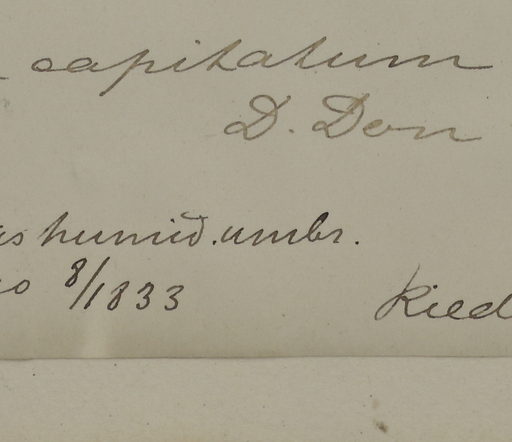 capitatum
D. Don
humid. umbr.
8/1833
Ried